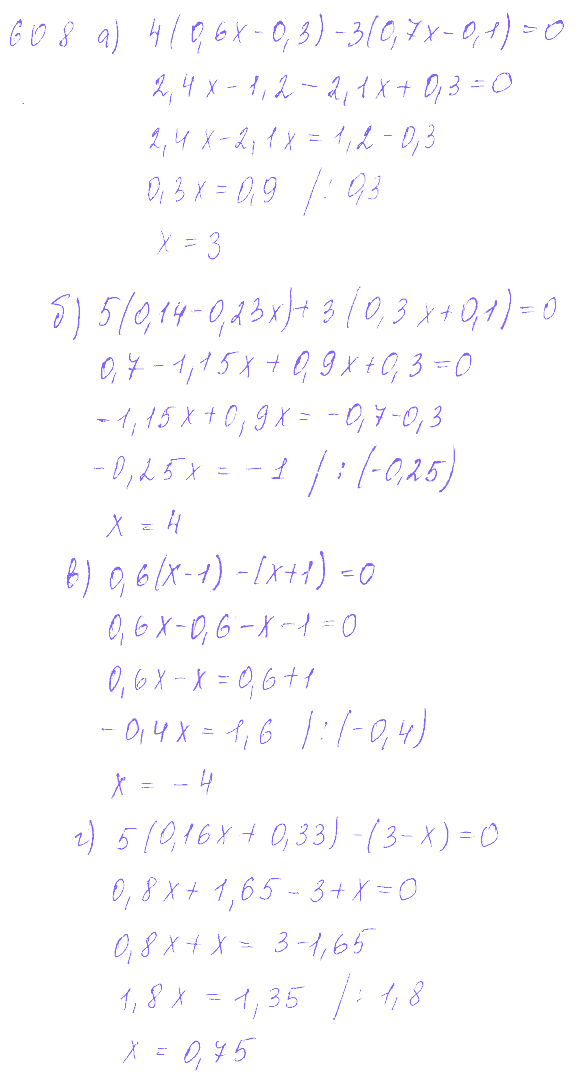 608 а) 4(0,6x-0,3)-3(0,7x-0,1)=0
2,4x-1,2-2,1x+0,3=0
2,4x-2,1x=1,2-0,3
0,3x=0,9 /:0,3
x=3
б) 5(0,14-0,23x)+3(0,3x+0,1)=0
0,7-1,15x+0,9x+0,3=0
-1,15x+0,9x=-0,7-0,3
-0,25x=-1 /:(-0,25)
x=4
в) 0,6(x-1)-(x+1)=0
0,6x-0,6-x-1=0
0,6x-x=0,6+1
-0,4x=1,6 /:(-0,4)
x=-4
г) 5(0,16x+0,33)-(3-x)=0
0,8x+1,65-3+x=0
0,8x+x=3-1,65
1,8x=1,35 /:1,8
x=0,75